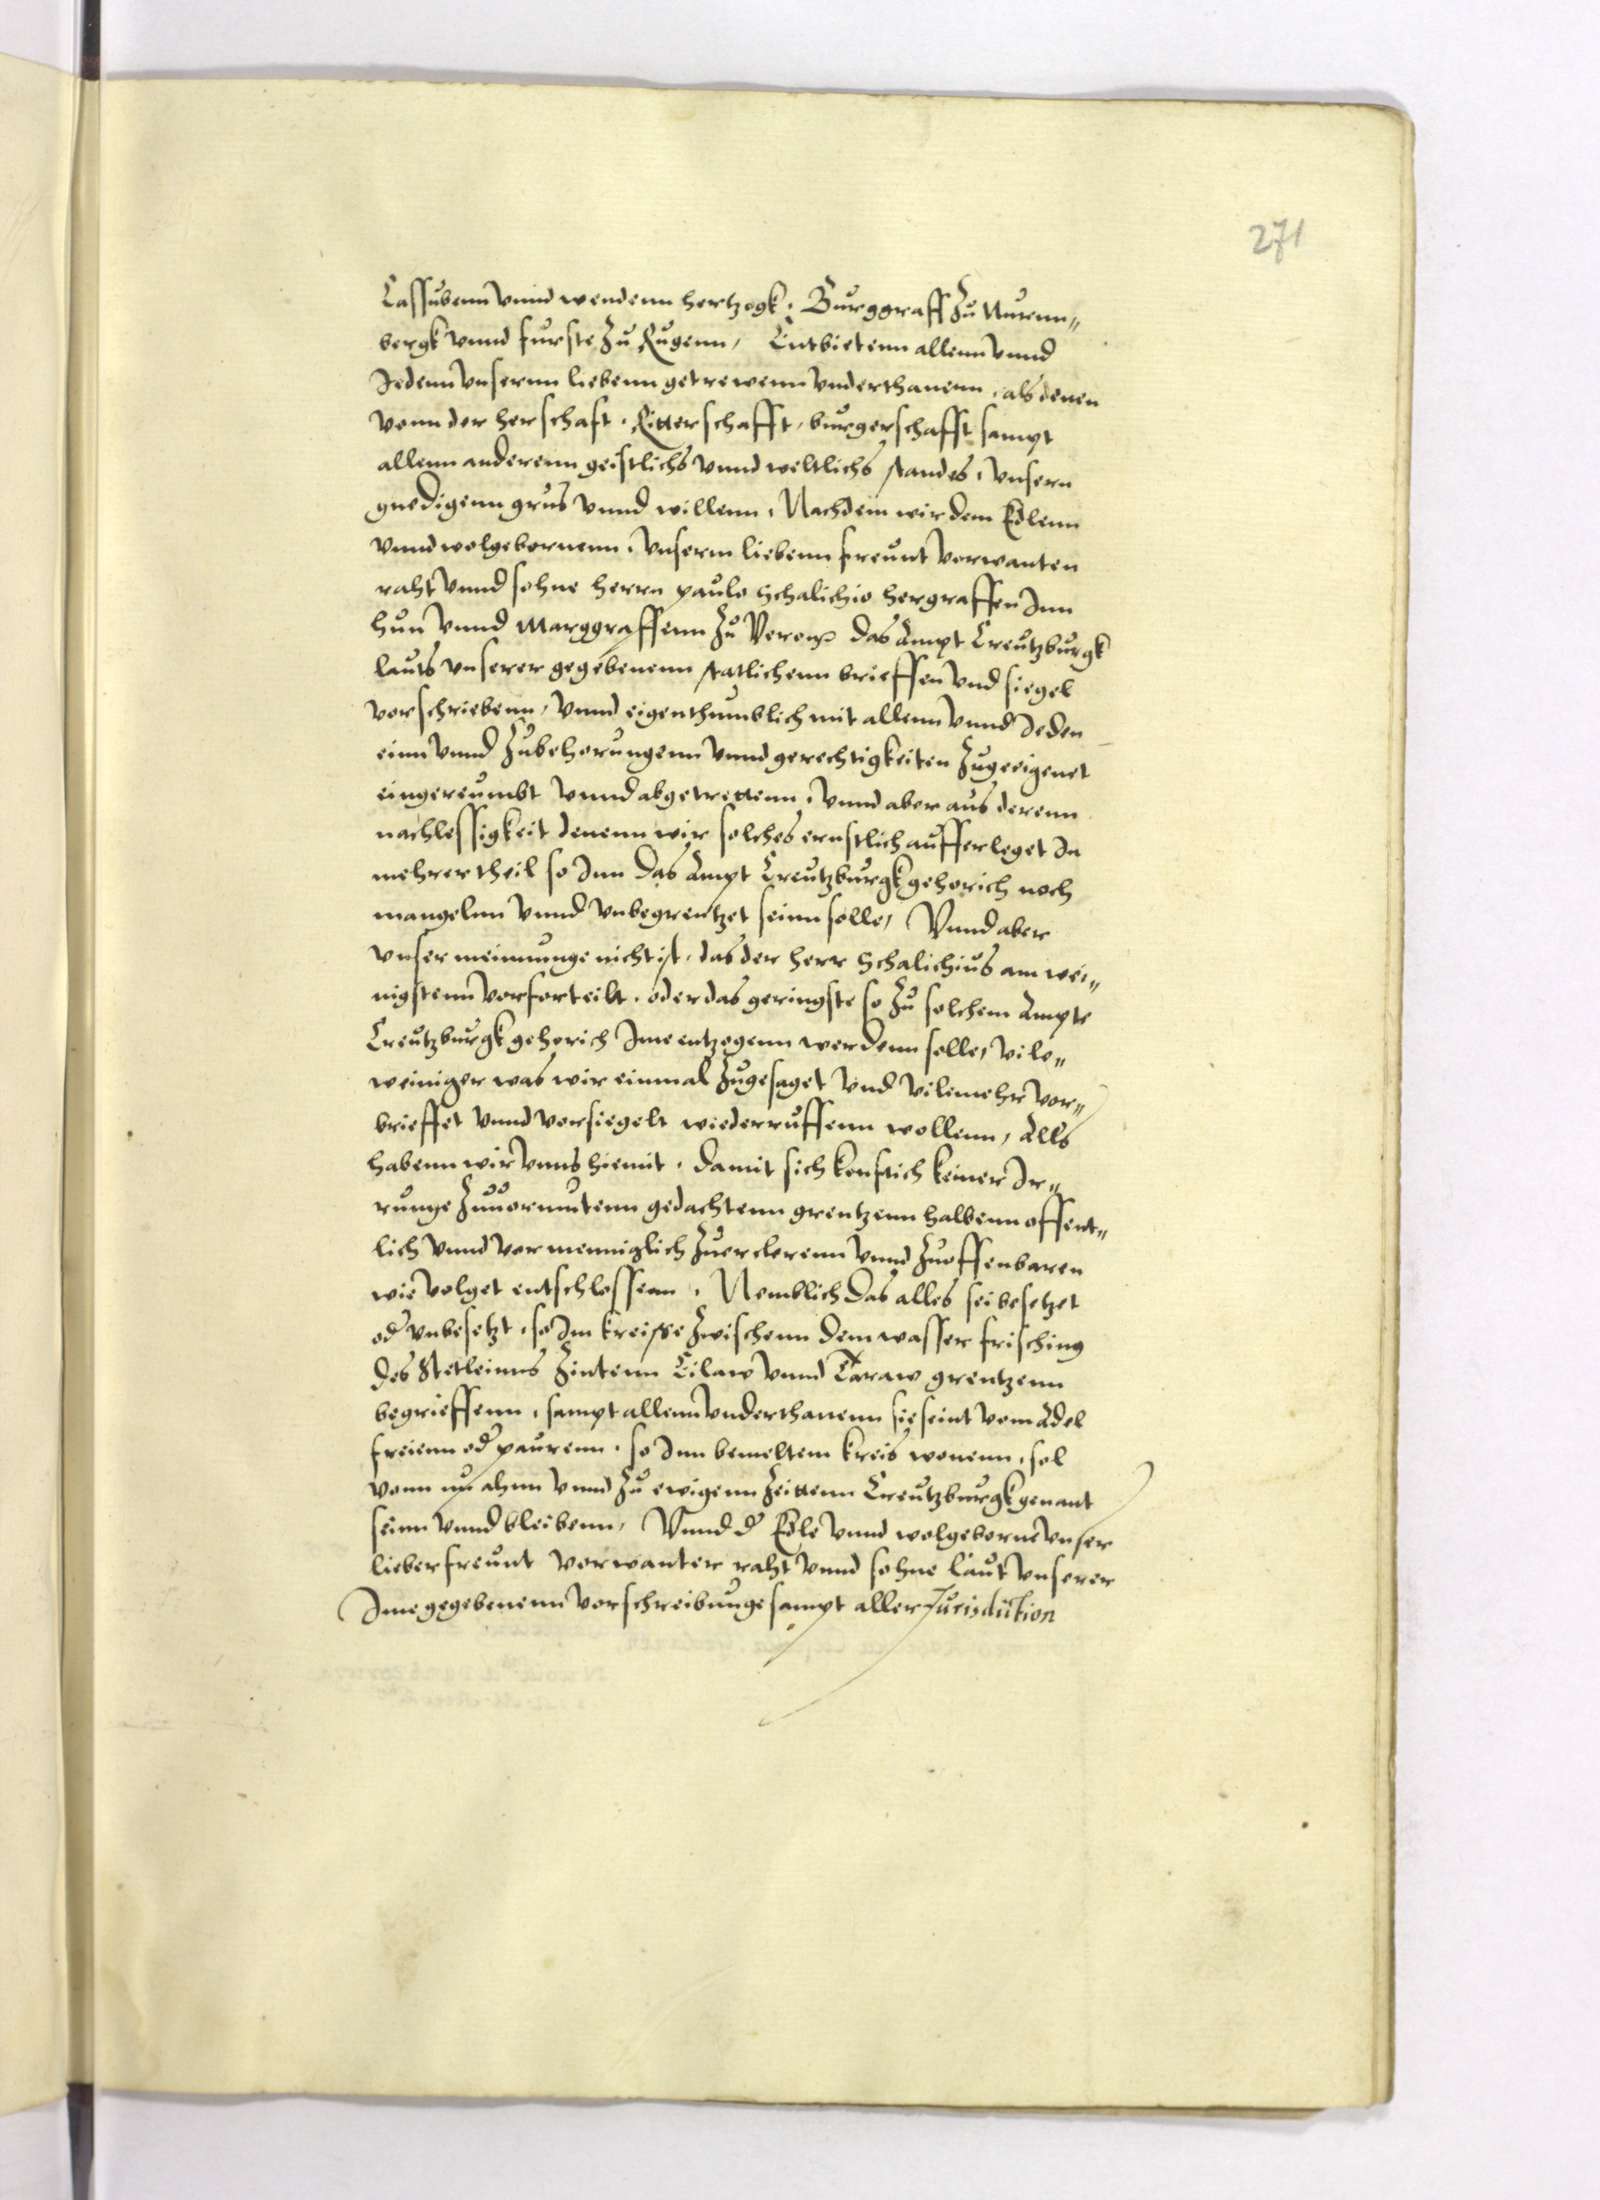 271
Cassubenn vnnd wendenn hertzogk, Burggraff zu Nurenn„
bergk vnnd furste zu Rugenn, Entbietenn allenn vnnd
Jedenn vnsernn liebenn getrewenn vnderthanenn, als denen
vonn der herschaft, Ritterschafft, burgerschafft sampt
allenn anderenn geistlichs vnnd weltlichs standes, vnsern
gnedigenn grus vnnd willenn, Nachdem wir dem Edlenn
vnnd wolgebornenn, vnserm liebenn freunt vorwanten
raht vnnd sohne herrn paulo Schalichio hergraffen Inn
hun vnnd Marggraffenn zu Veronn das Ampt Creutzburgk
lauts vnserer gegebenenn statlichenn brieffen vnd siegel
vorschriebenn, vnnd eigenthumblich mit allenn vnnd Jeden
einn vnnd zubehorungenn vnnd gerechtigkeiten zugeeigenet
eingereumbt vnnd abgetrettenn, vnnd aber aus derenn
nachlessigkeit denenn wir solches ernstlich aufferleget In
mehrer theil so Inn das Ampt Creutzburgk gehorich noch
mangelnn vnnd vnbegrentzet seinn solle, Vnnd aber
vnser meinnunge nicht ist, das der herr Schalichius am wei„
nigstenn vorforteilt, oder das geringste so zu solchem Ampte
Creutzburgk gehorich Ime entzogenn werdenn solle, vile„
weiniger was wir einmal zugesaget vnd vilemehr vor„
brieffet vnnd versiegelt wiederruffenn wollenn, Alls
habenn wir vnns hiemit, damit sich konftich keiner Ir„
runge zuuormutenn gedachtenn grentzenn halbenn offent„
lich vnnd vor menniglich zuerclerenn vnnd zuoffenbaren
wie volget entschlossenn, Nemblich das alles sei besetzet
od vnbesetzt, so Im kreisse zwischenn dem wasser frisching
des Stetleinns Zintenn Eilaw vnnd Taraw grentzenn
begrieffenn, sampt allenn vnderthanenn sie seint vom Adel
freienn od paurenn, so Inn bemeltem kreis wonenn, sol
vonn nu ahnn vnnd zu ewigenn zeittenn Creutzburgk genant
seinn vnnd bleibenn, Vnnd d Edle vnnd wolgeborne vnser
lieber freunt vorwanter raht vnnd sohne laut vnserer
Ime gegebenenn vorschreibunge sampt aller Jurisdiction